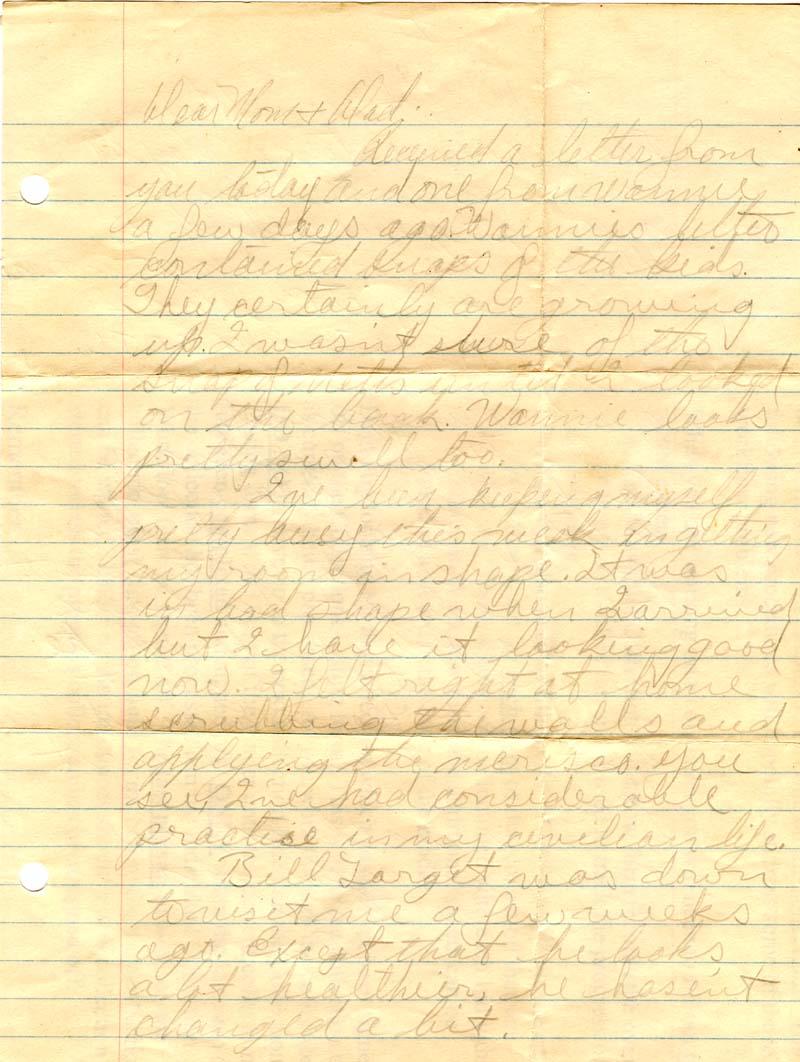 Dear Mom + Dad;
Received a letter from
you today and one from Wannie
a few days ago. Wannies letter
contained snaps of the kids.
They certainly are growing
up. I wasn't sure of the
snap of until I looked
on the back. Wannie looks
pretty swell too.
I've been keeping myself
pretty busy this week in getting
my room in shape. It was
in bad shape when I arrived
but I have it looking good
now. I felt right at home
scrubbing the walls and
applying the merisco. You
see, I've had considerable
practise in my civilian life.
Bill Target was down
to visit me a few weeks
ago. Except that he looks
a bit healthier, he hasent
changed a bit.